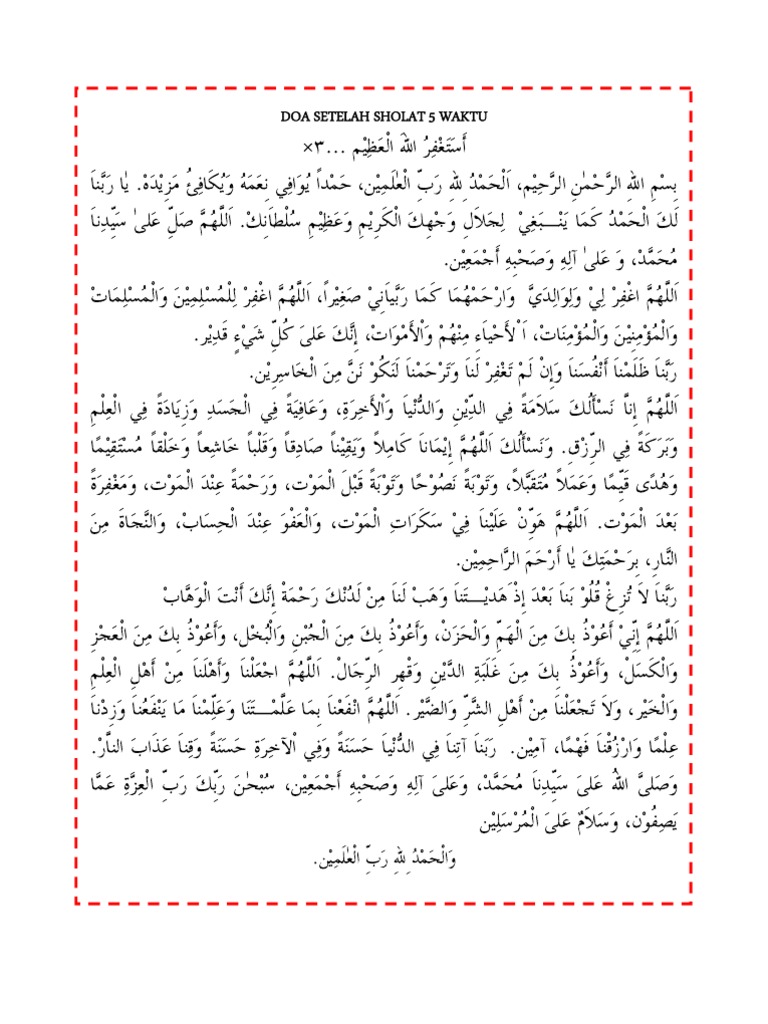 DOA SETELAH SHOLAT 5 WAKTU
أَسَتَغْفِرُ اللهَ الْعَظِيْم ...٣×
بِسْمِ اللهِ الرَّحْمٰنِ الرَّحِيْم، اَلْحَمْدُ لِلهِ رَبِّ الْعٰلَمِيْن، حَمْداً يُوَافِي نِعَمَهُ وَيُكَافِئُ مَزِيْدَهْ. يٰا رَبَّناَ
لَكَ الْحَمْدُ كَمَا يَنْـــبَغِيْ لِجَلَالِ وَجْهِكَ الْكَرِيْمِ وَعَظِيْمِ سُلْطاَنِكْ. اَللَّهُمَّ صَلِّ عَلىٰ سَيِّدِناَ
مُحَمَّدْ، وَ عَلىٰ آلِهِ وَصَحْبِهِ أَجْمَعِيْن.
اَللَّهُمَّ اغْفِرْ لِيْ وَلِوَالِدَيَّ وَارْحَمْهُمَا كَمَا رَبَّيَانِيْ صَغِيْراً، اَللَّهُمَّ اغْفِرْ لِلْمُسْلِمِيْنَ وَالْمُسْلِمَاتْ
وَالْمُؤْمِنِيْنَ وَالْمُؤْمِنَاتْ، اَلْأَحْيَاءِ مِنْهُمْ وَاْلأَمْوَاتْ، إِنَّكَ عَلىَ كُلِّ شَيْءٍ قَدِيْر.
رَبَّناَ ظَلَمْناَ أَنْفُسَنَا وَإِنْ لَمْ تَغْفِرْ لَناَ وَتَرْحَمْناَ لَنَكُوْ نَنَّ مِنَ الْخَاسِرِيْن.
اَللَّهُمَّ إِناَّ نَسْأَلُكَ سَلاَمَةً فِي الدِّيْنِ وَالدُّنْياَ وَاْلأَخِرَةِ، وَعَافِيَةً فِي الْجَسَدِ وَزِيَادَةً فِي الْعِلْمِ
وَبَرَكَةً فِي الرِّزْقِ. وَنَسْأَلُكَ اَللَّهُمَّ إِيْمَاناَ كَامِلاً وَيَقِيْناً صَادِقاً وَقَلْباً خَاشِعاً وَخَلْقاً مُسْتَقِيْمًا
وَهُدًى قَيِّمًا وَعَمَلاً مُتَقَبَّلاً، وَتَوْبَةً نَصُوْحًا وَتَوْبَةً قَبْلَ الْمَوْت، وَرَحْمَةً عِنْدَ الْمَوْت، وَمَغْفِرَةً
بَعْدَ الْمَوْت. اَللَّهُمَّ هَوِّنْ عَلَيْناَ فِيْ سَكَرَاتِ الْمَوْت، وَالْعَفْوَ عِنْدَ الْحِسَابْ، وَالنَّجَاةَ مِنَ
النَّارِ، بِرَحْمَتِكَ يٰا أَرْحَمَ الرَّاحِمِيْن.
رَبَّناَ لاَ تُزِغْ قُلُوْ بَناَ بَعْدَ إِذْ هَدَيْـــتَناَ وَهَبْ لَناَ مِنْ لَدُنْكَ رَحْمَةْ إِنَّكَ أَنْتَ الْوَهَّابْ
اَللَّهُمَّ إِنِّيْ أَعُوْذُ بِكَ مِنَ الْهَمِّ وَالْحَزَنْ، وَأَعُوْذُ بِكَ مِنَ الْجُبْنِ وَالْبُخْل، وَأَعُوْذُ بِكَ مِنَ الْعَجْزِ
وَالْكَسَلْ، وَأَعُوْذُ بِكَ مِنَ غَلَبَةِ الدَّيْنِ وَقْهِرِ الرِّجَالْ. اَللَّهُمَّ اجْعَلْناَ وَأَهْلَناَ مِنْ أَهْلِ الْعِلْمِ
وَالْخَيْر، وَلاَ تَجْعَلْناَ مِنْ أَهْلِ الشَّرِّ وَالضَّيْر. اَللَّهُمَّ انْفَعْناَ بِمَا عَلَّمْـــتَنَا وَعَلِّمْناَ مَا يَنْفَعُناَ وَزِدْناَ
عِلْمًا وَارْزُقْناَ فَهْمًا، آمِيْن. رَبَناَ آتِناَ فِي الدُّنْياَ حَسَنَةً وَفِي اْلآخِرَةِ حَسَنَةً وَقِناَ عَذَابَ الناَّرْ.
وَصَلىَّ اللهُ عَلىَ سَيِّدِناَ مُحَمَّدْ، وَعَلىَ آلِهِ وَصَحْبِهِ أَجْمَعِيْن، سُبْحٰنَ رَبِّكَ رَبِّ الْعِزَّةِ عَمَّا
يَصِفُوْن، وَسَلاَمٌ عَلىَ الْمُرْسَلِيْن
وَالْحَمْدُ لِلهِ رَبِّ الْعٰلَمِيْن.